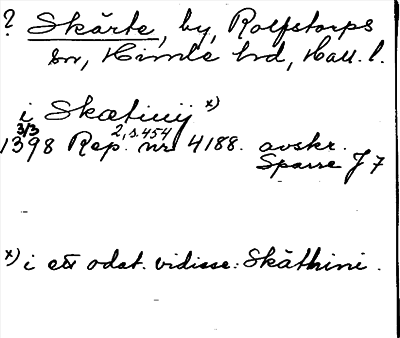 ? Skärte, by, Rolfstorps
sn, Himle hrd, Hall. l.
i Skætinij x)
3/3
1398 Rep. nr 4188. avskr.
2, s. 454
Sparre J 7
x) i ett odat. vidisse: Skäthini.